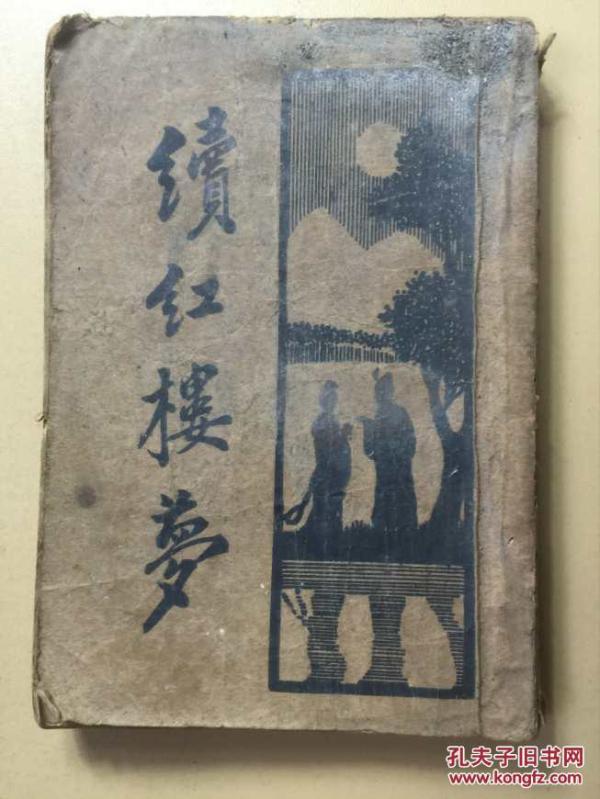 續紅樓夢
孔夫子旧书网
www.kongfz.com